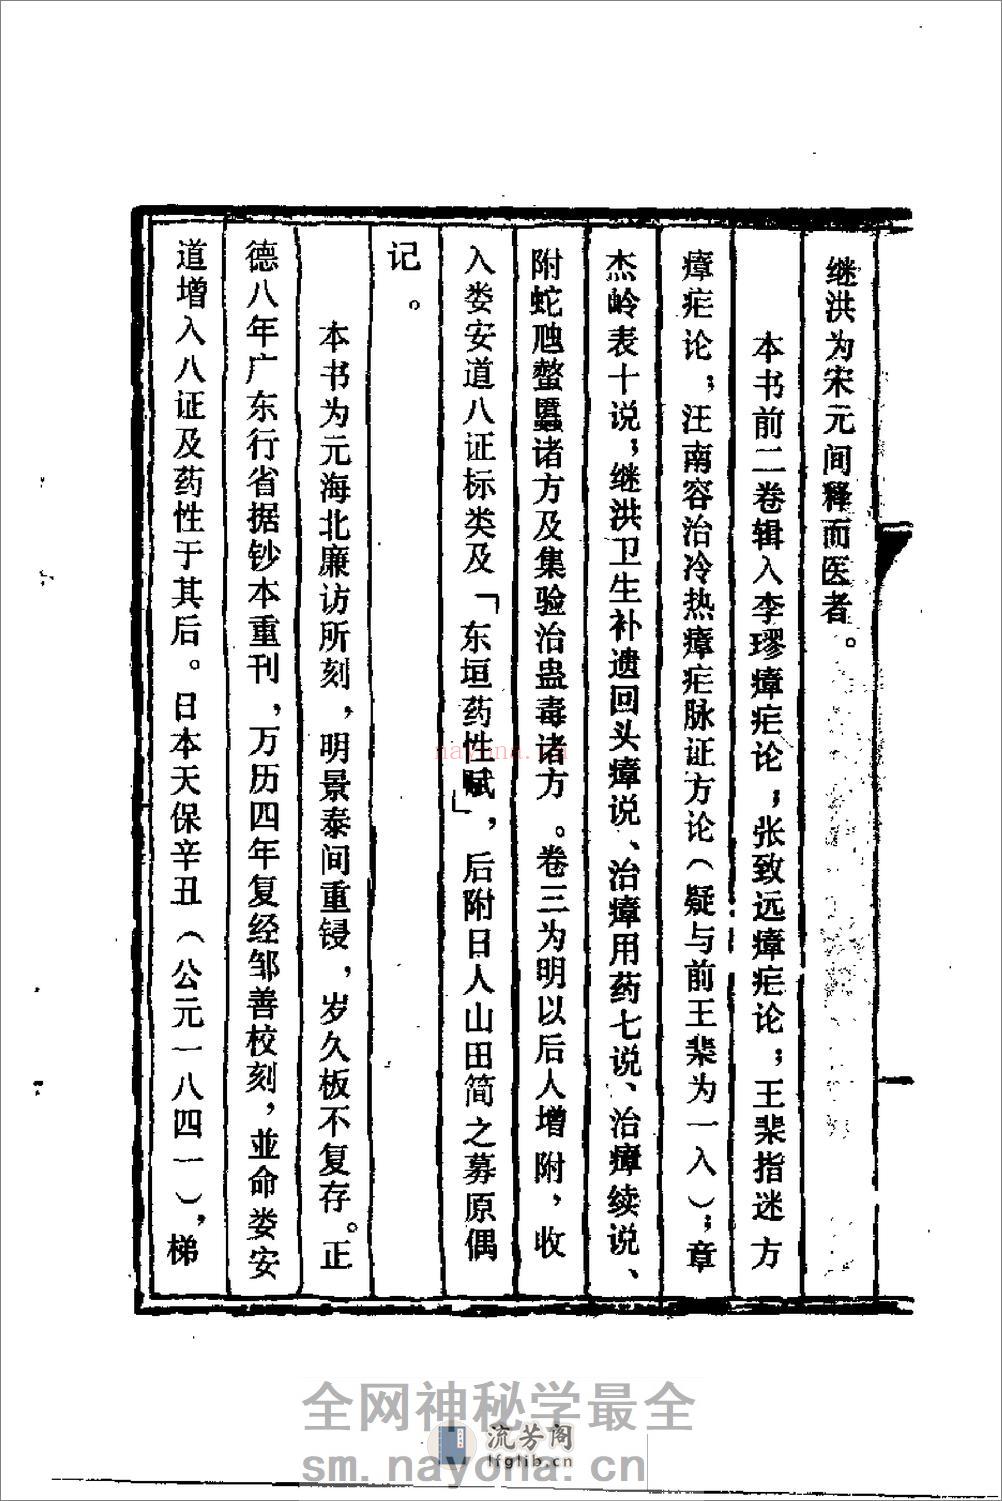 继洪为宋元间释而医者。
本书前二卷辑入李璆瘴疟论；张致远瘴疟论；王棐指迷方
瘴疟论；汪南容治冷热瘴疟脉证方论（疑与前王棐为一入）；章
杰岭表十说；继洪卫生补遗回头瘴说、治瘴用药七说、治瘴续说、
附蛇虺螫蠚诸方及集验治蛊毒诸方。卷三为明以后人增附，收
入娄安道八证标类及「东垣药性赋」，后附日人山田简之募原偶
记。
本书为元海北廉访所刻，明景泰间重锓，岁久板不复存。正
德八年广东行省据钞本重刊，万历四年复经邹善校刻，並命娄安
道增入八证及药性于其后。日本天保辛丑（公元一八四一），梯
nayona.cn
全网神秘学最全
流芳阁
lfglib.cn
sm.nayona.cn